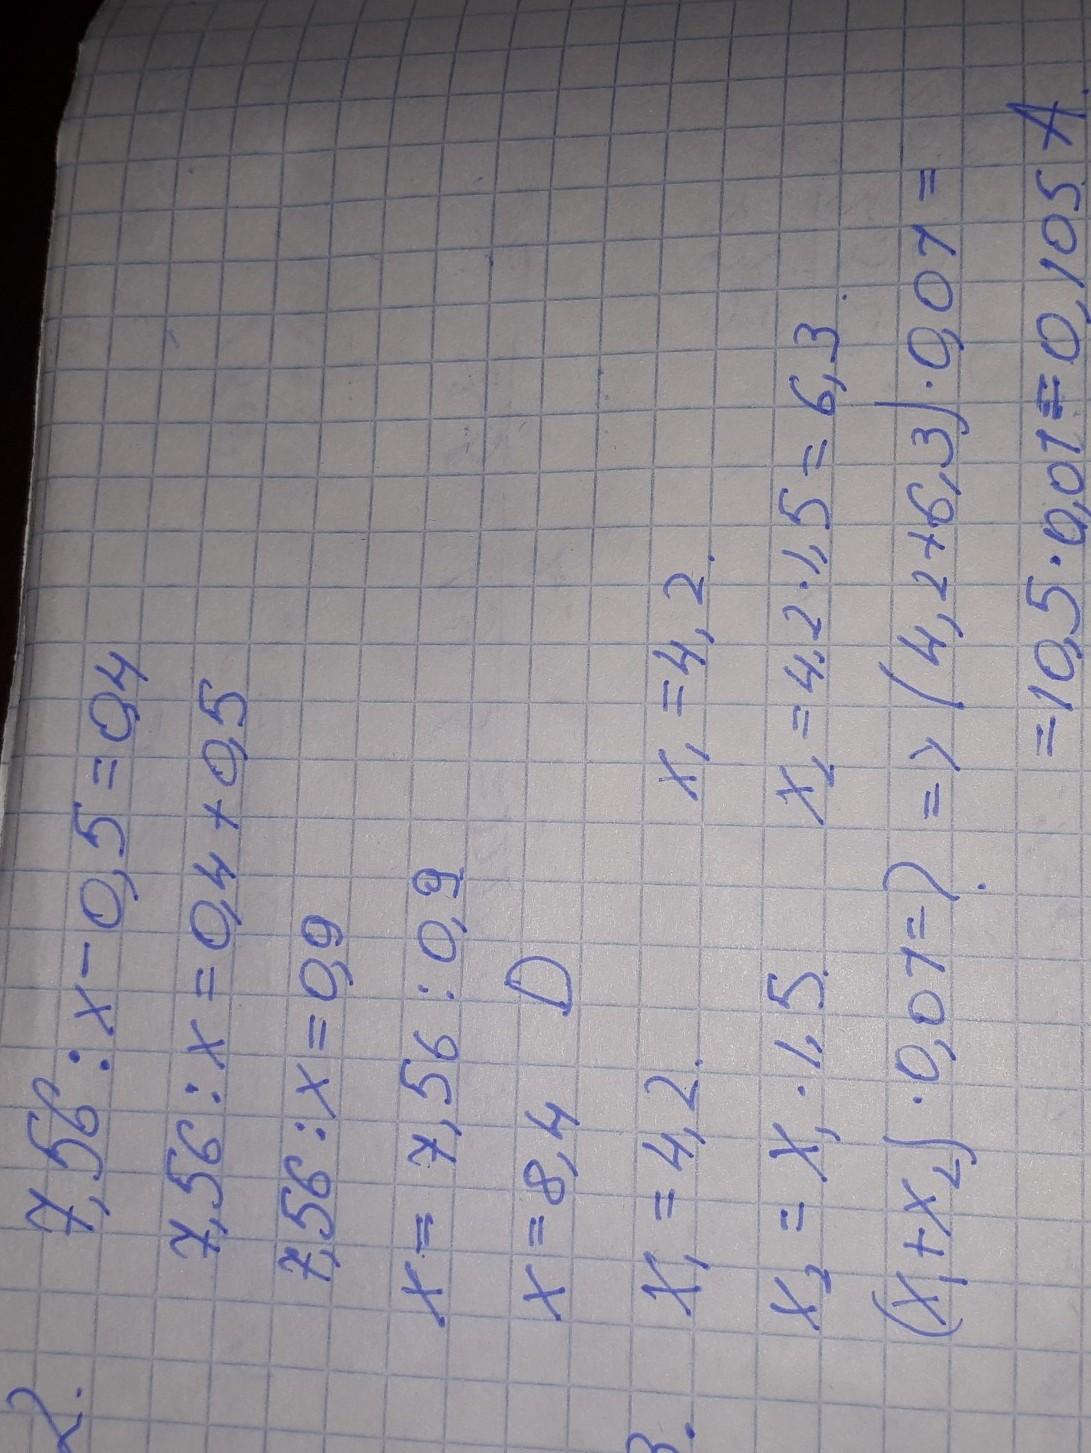 2. 7,56 : x - 0,5 = 0,4
7,56 : x = 0,4 + 0,5
7,56 : x = 0,9
x = 7,56 : 0,9
x = 8,4 D
3. x₁ = 4,2. x₁ = 4,2.
x₂ = x₁ · 1,5. x₂ = 4,2 · 1,5 = 6,3.
(x₁ + x₂) · 0,01 = ?. => (4,2 + 6,3) · 0,01 =
= 10,5 · 0,01 = 0,105 A.